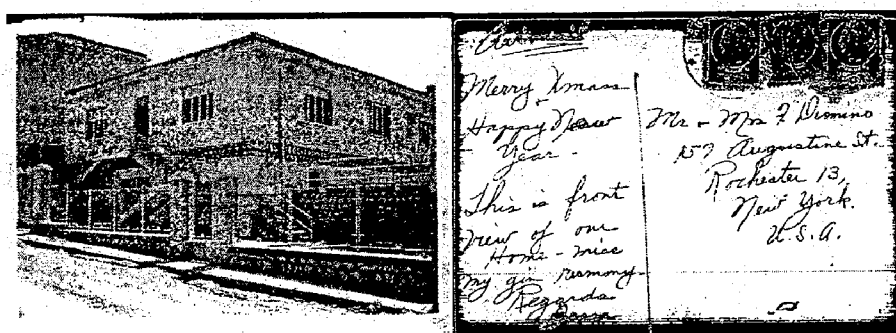 Merry Xmas
Happy New
Year -
This is front
view of our
Home - miss
my gin rummy -
Regards
Mr - Mrs F Dimino
157 Augustine St.
Rochester 13,
New York.
U.S.A.